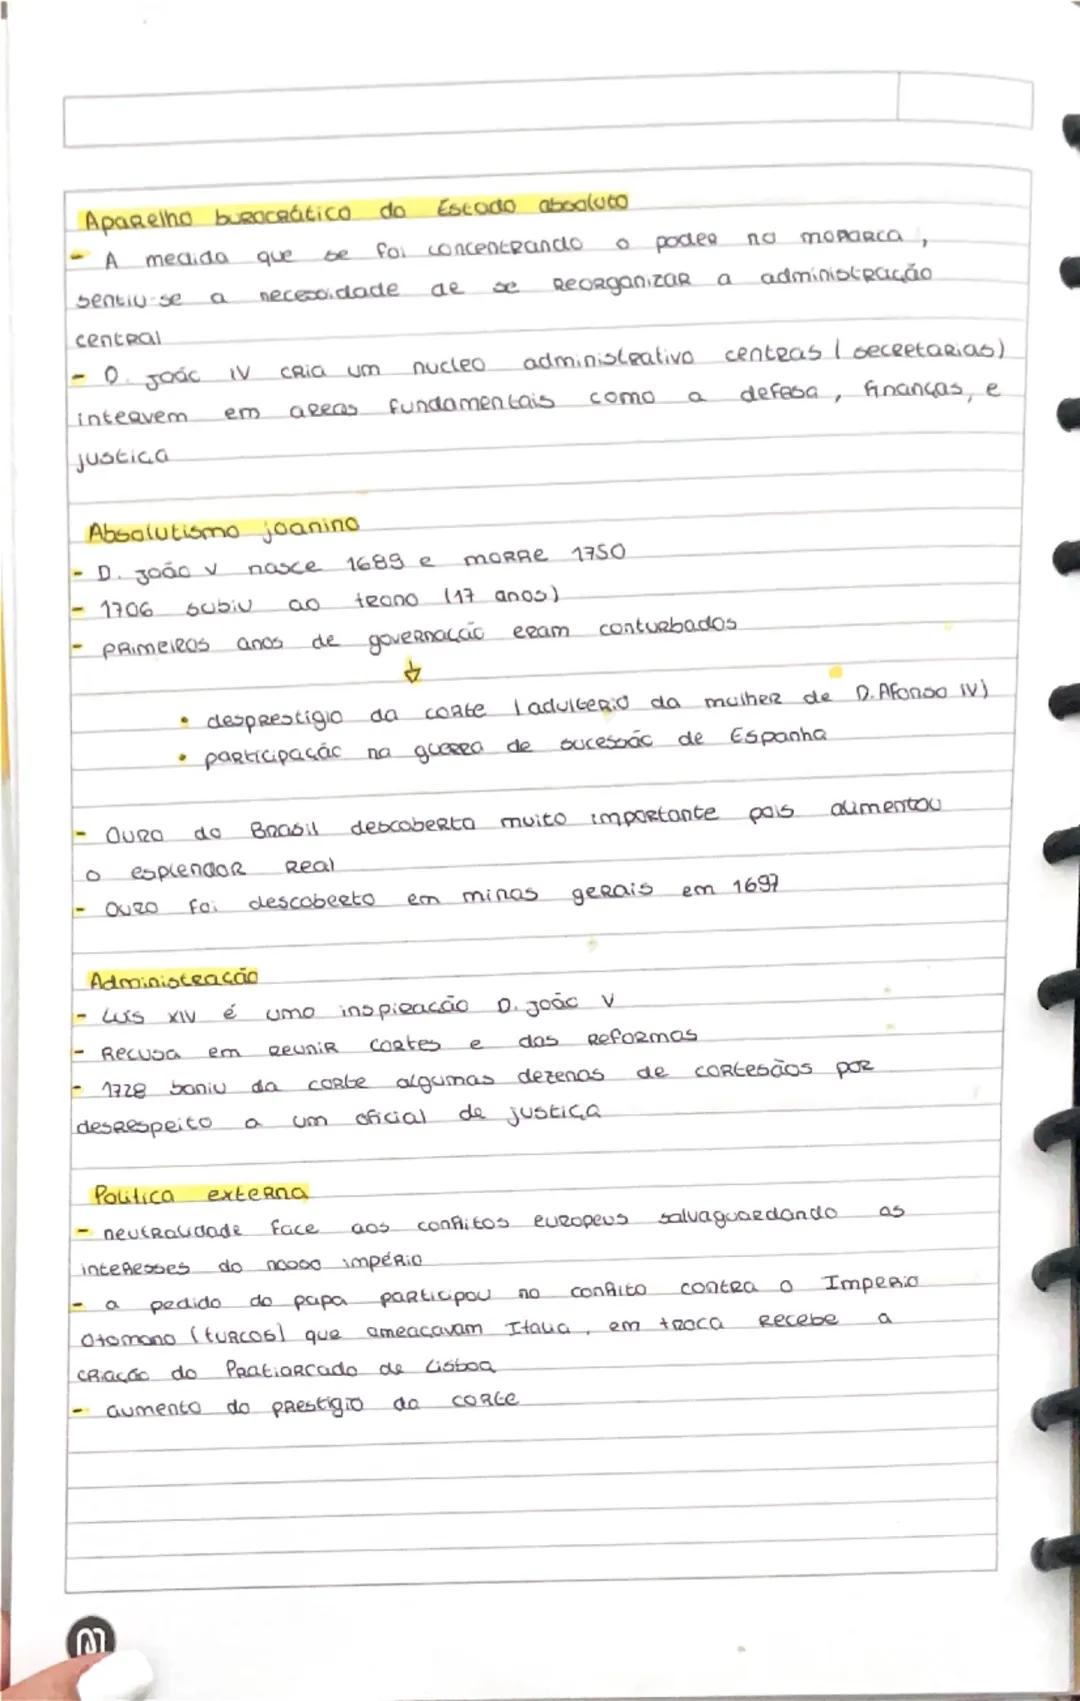 Aparelho burocrático do Estado absoluto
- A medida que se foi concentrando o poder no monarca,
sentiu-se a necessidade de se reorganizar a administração
central
- D. João IV cria um nucleo administrativo centras (secretarias)
intervem em areas fundamentais como a defesa, finanças, e
justiça
Absolutismo joanino
- D. João V nasce 1689 e morre 1750
- 1706 subiu ao trono (17 anos)
- primeiros anos de governação eram conturbados
• desprestigio da corte (adulterio da mulher de D. Afonso IV)
• participação na guerra de sucessão de Espanha
- Ouro do Brasil descoberta muito importante pois alimentou
o esplendor real
- Ouro foi descoberto em minas gerais em 1697
Administração
- Luis XIV é uma inspiração D. João V
- Recusa em reunir cortes e das reformas
- 1728 baniu da corte algumas dezenas de cortesãos por
desrespeito a um oficial de justiça
Politica externa
- neutralidade face aos conflitos europeus salvaguardando as
interesses do nosso império
- a pedido do papa participou no conflito contra o Imperio
Otomano (turcos) que ameaçavam Italia, em troca recebe a
criação do Pratiarcado de Lisboa
- aumento do prestigio da corte